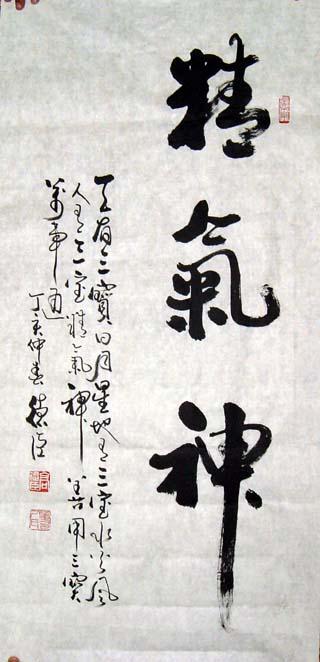 精氣神
天有三寶日月星地有三寶水火風
人有三寶精氣神善用三寶
萬事通
丁亥仲春